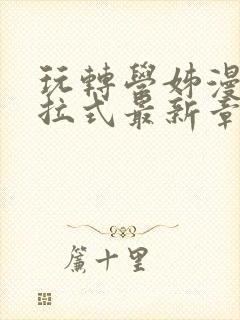 玩轉學姊漫
拉式最新章
簾十里